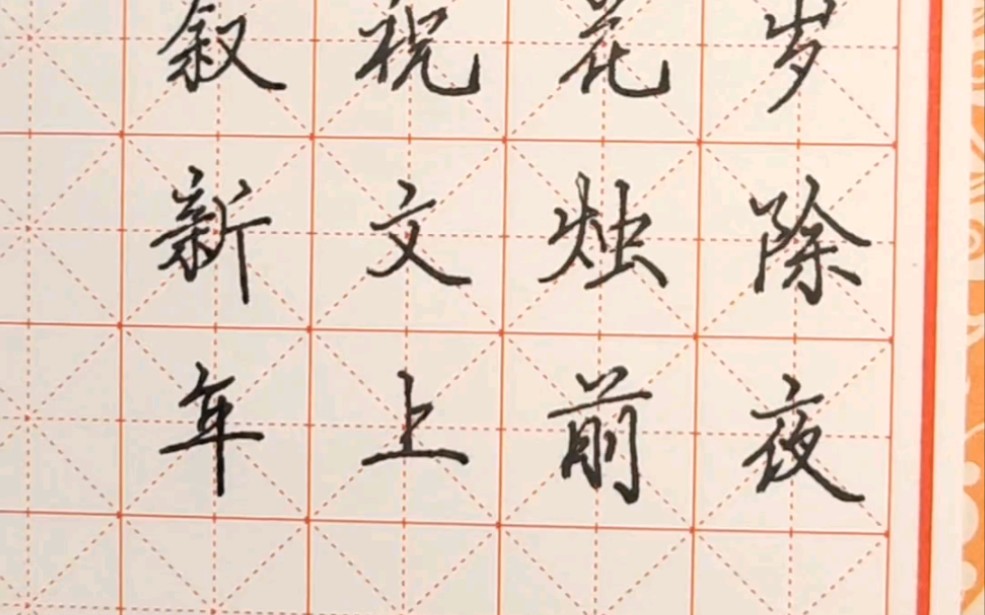 岁除夜
花烛前
祝文上
叙新年